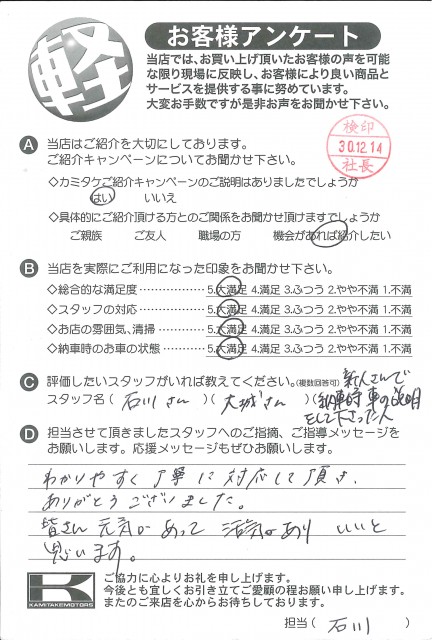 軽
お客様アンケート
当店では、お買い上げ頂いたお客様の声を可能
な限り現場に反映し、お客様により良い商品と
サービスを提供する事に努めています。
大変お手数ですが是非お声をお聞かせ下さい。
検印
30.12.14
社長
A 当店はご紹介を大切にしております。
ご紹介キャンペーンについてお聞かせ下さい。
◇カミタケご紹介キャンペーンのご説明はありましたでしょうか
はい いいえ
◇具体的にご紹介頂ける方とのご関係をお聞かせ頂けますでしょうか
ご親族 ご友人 職場の方 機会があれば紹介したい
B 当店を実際にご利用になった印象をお聞かせ下さい。
◇総合的な満足度 5.大満足 4.満足 3.ふつう 2.やや不満 1.不満
◇スタッフの対応 5.大満足 4.満足 3.ふつう 2.やや不満 1.不満
◇お店の雰囲気、清掃 5.大満足 4.満足 3.ふつう 2.やや不満 1.不満
◇納車時のお車の状態 5.大満足 4.満足 3.ふつう 2.やや不満 1.不満
C 評価したいスタッフがいれば教えてください。(複数回答可)
スタッフ名(石川さん)(大城さん)(新人さんで
納車時 車の説明
をして下さった人
D 担当させて頂きましたスタッフへのご指摘、ご指導メッセージを
お願いします。応援メッセージもぜひお願いします。
わかりやすく丁寧に対応して頂き、
ありがとうございました。
皆さん元気があって活気があり いいと
思います。
K
KAMITAKEMOTORS
ご協力に心よりお礼を申し上げます。
今後とも宜しくお引き立てご愛顧の程お願い申し上げます。
またのご来店を心からお待ちしております。
担当(石川)